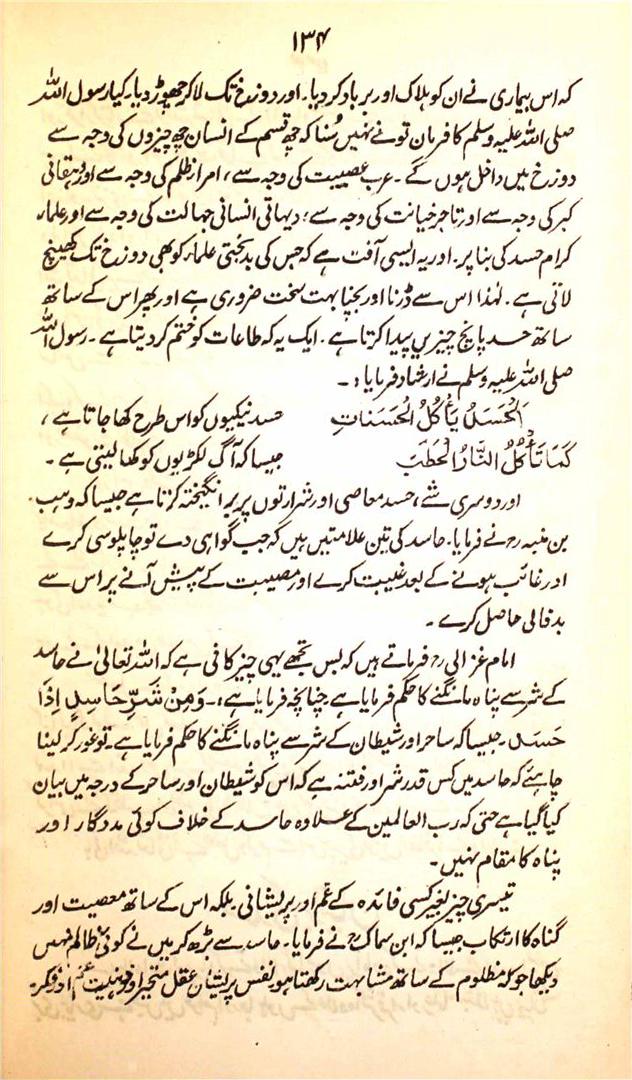 ۱۳۴
کہ اس بیماری نے ان کو ہلاک اور برباد کر دیا۔ اور دوزخ تک لا کر چھوڑ دیا۔ کیا رسول اللہ
صلی اللہ علیہ وسلم کا فرمان تو نے نہیں سُنا کہ چھ قسم کے انسان چھ چیزوں کی وجہ سے
دوزخ میں داخل ہوں گے۔ عرب عصبیت کی وجہ سے، امراء ظلم کی وجہ سے اور دہقانی
کبر کی وجہ سے اور تاجر خیانت کی وجہ سے؛ دیہاتی انسانی جہالت کی وجہ سے اور علماء
کرام حسد کی بنا پر۔ اور یہ ایسی آفت ہے کہ جس کی بدبختی علماء کو بھی دوزخ تک کھینچ
لاتی ہے۔ لہٰذا اس سے ڈرنا اور بچنا بہت سخت ضروری ہے اور پھر اس کے ساتھ
ساتھ حسد پانچ چیزیں پیدا کرتا ہے۔ ایک یہ کہ طاعات کو ختم کر دیتا ہے۔ رسول اللہ
صلی اللہ علیہ وسلم نے ارشاد فرمایا:۔
اَلْحَسَدُ یَأْکُلُ الْحَسَنَاتِ حسد نیکیوں کو اس طرح کھا جاتا ہے،
کَمَا تَأْکُلُ النَّارُ الْحَطَبَ جیسا کہ آگ لکڑیوں کو کھا لیتی ہے۔
اور دوسری شے، حسد معاصی اور شرارتوں پر برانگیختہ کرتا ہے جیسا کہ وہب
بن منبہ رح نے فرمایا۔ حاسد کی تین علامتیں ہیں کہ جب گواہی دے تو چاپلوسی کرے
اور غائب ہونے کے بعد غیبت کرے اور مصیبت کے پیش آنے پر اس سے
بدفالی حاصل کرے۔
امام غزالی رح فرماتے ہیں کہ بس تجھے یہی چیز کافی ہے کہ اللہ تعالیٰ نے حاسد
کے شر سے پناہ مانگنے کا حکم فرمایا ہے۔ چنانچہ فرمایا ہے:۔ وَمِنْ شَرِّ حَاسِدٍ اِذَا
حَسَدَ۔ جیسا کہ ساحر اور شیطان کے شر سے پناہ مانگنے کا حکم فرمایا ہے۔ تو غور کر لینا
چاہئے کہ حاسد میں کس قدر شر اور فتنہ ہے کہ اس کو شیطان اور ساحر کے درجہ میں بیان
کیا گیا ہے حتیٰ کہ رب العالمین کے علاوہ حاسد کے خلاف کوئی مددگار اور
پناہ کا مقام نہیں۔
تیسری چیز بغیر کسی فائدہ کے غم اور پریشانی بلکہ اس کے ساتھ معصیت اور
گناہ کا ارتکاب جیسا کہ ابن سماک رح نے فرمایا۔ حاسد سے بڑھ کر میں نے کوئی ظالم نہیں
دیکھا جو کہ مظلوم کے ساتھ مشابہت رکھتا ہو نفس پریشان عقل متحیر اور غم اور فکر۔